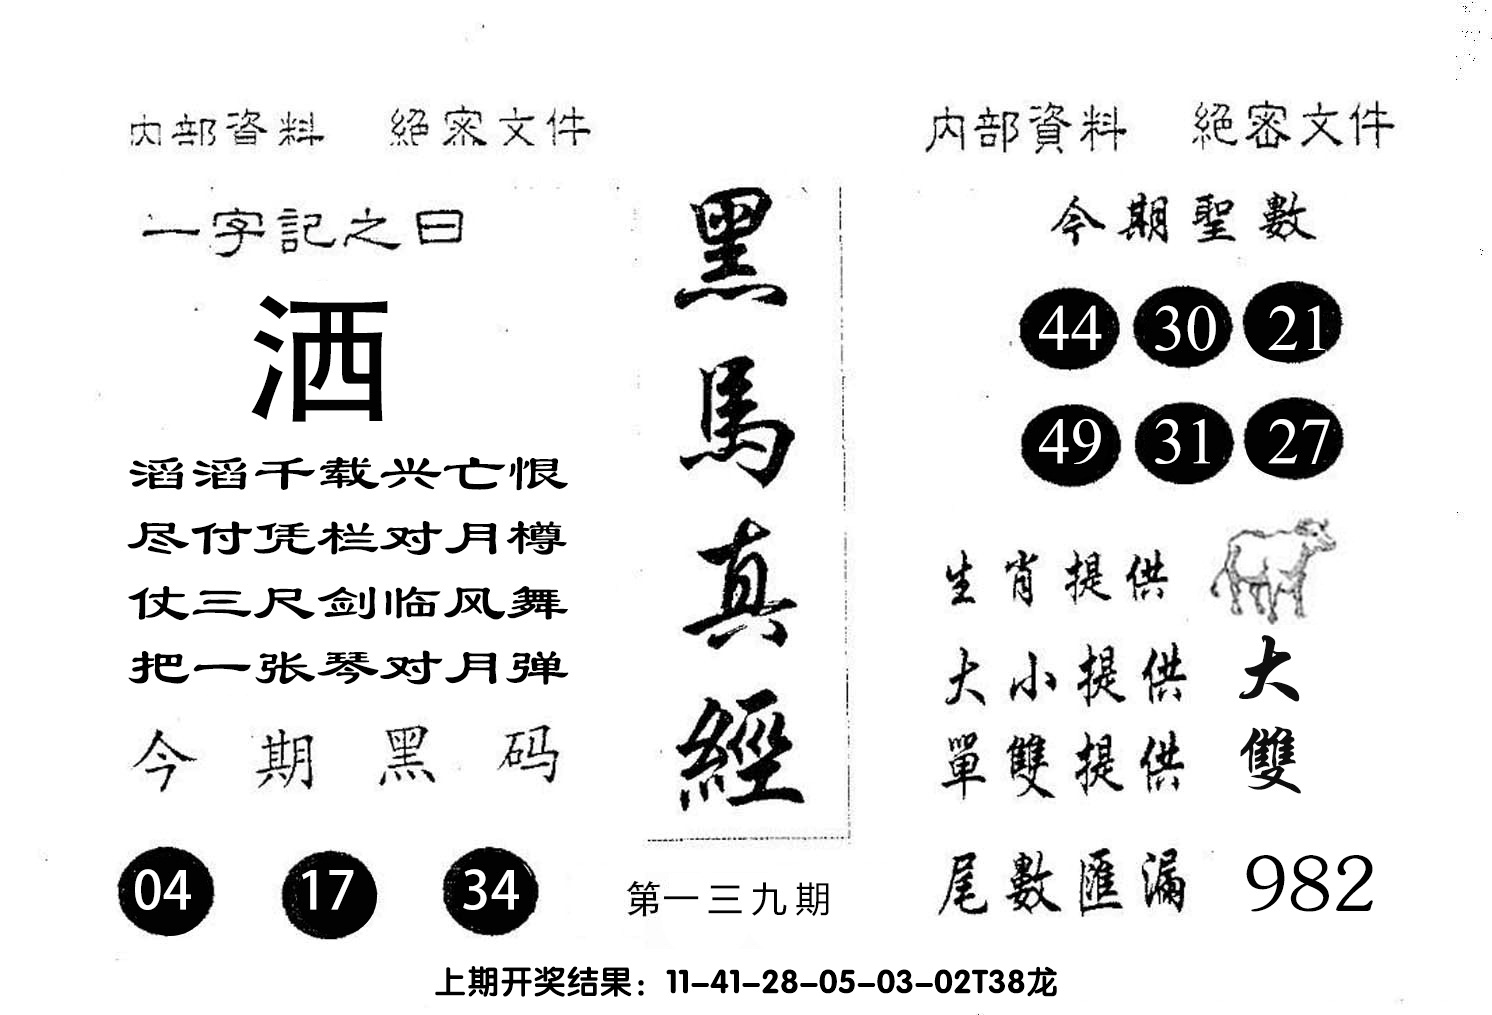 内部資料 絕密文件
一字記之曰
洒
滔滔千载兴亡恨
尽付凭栏对月樽
仗三尺剑临风舞
把一张琴对月弹
今期黑码
04 17 34
黑馬真經
第一三九期
内部資料 絕密文件
今期聖數
44 30 21
49 31 27
生肖提供
大小提供 大
單雙提供 雙
尾數匯漏 982
上期开奖结果：11-41-28-05-03-02T38龙